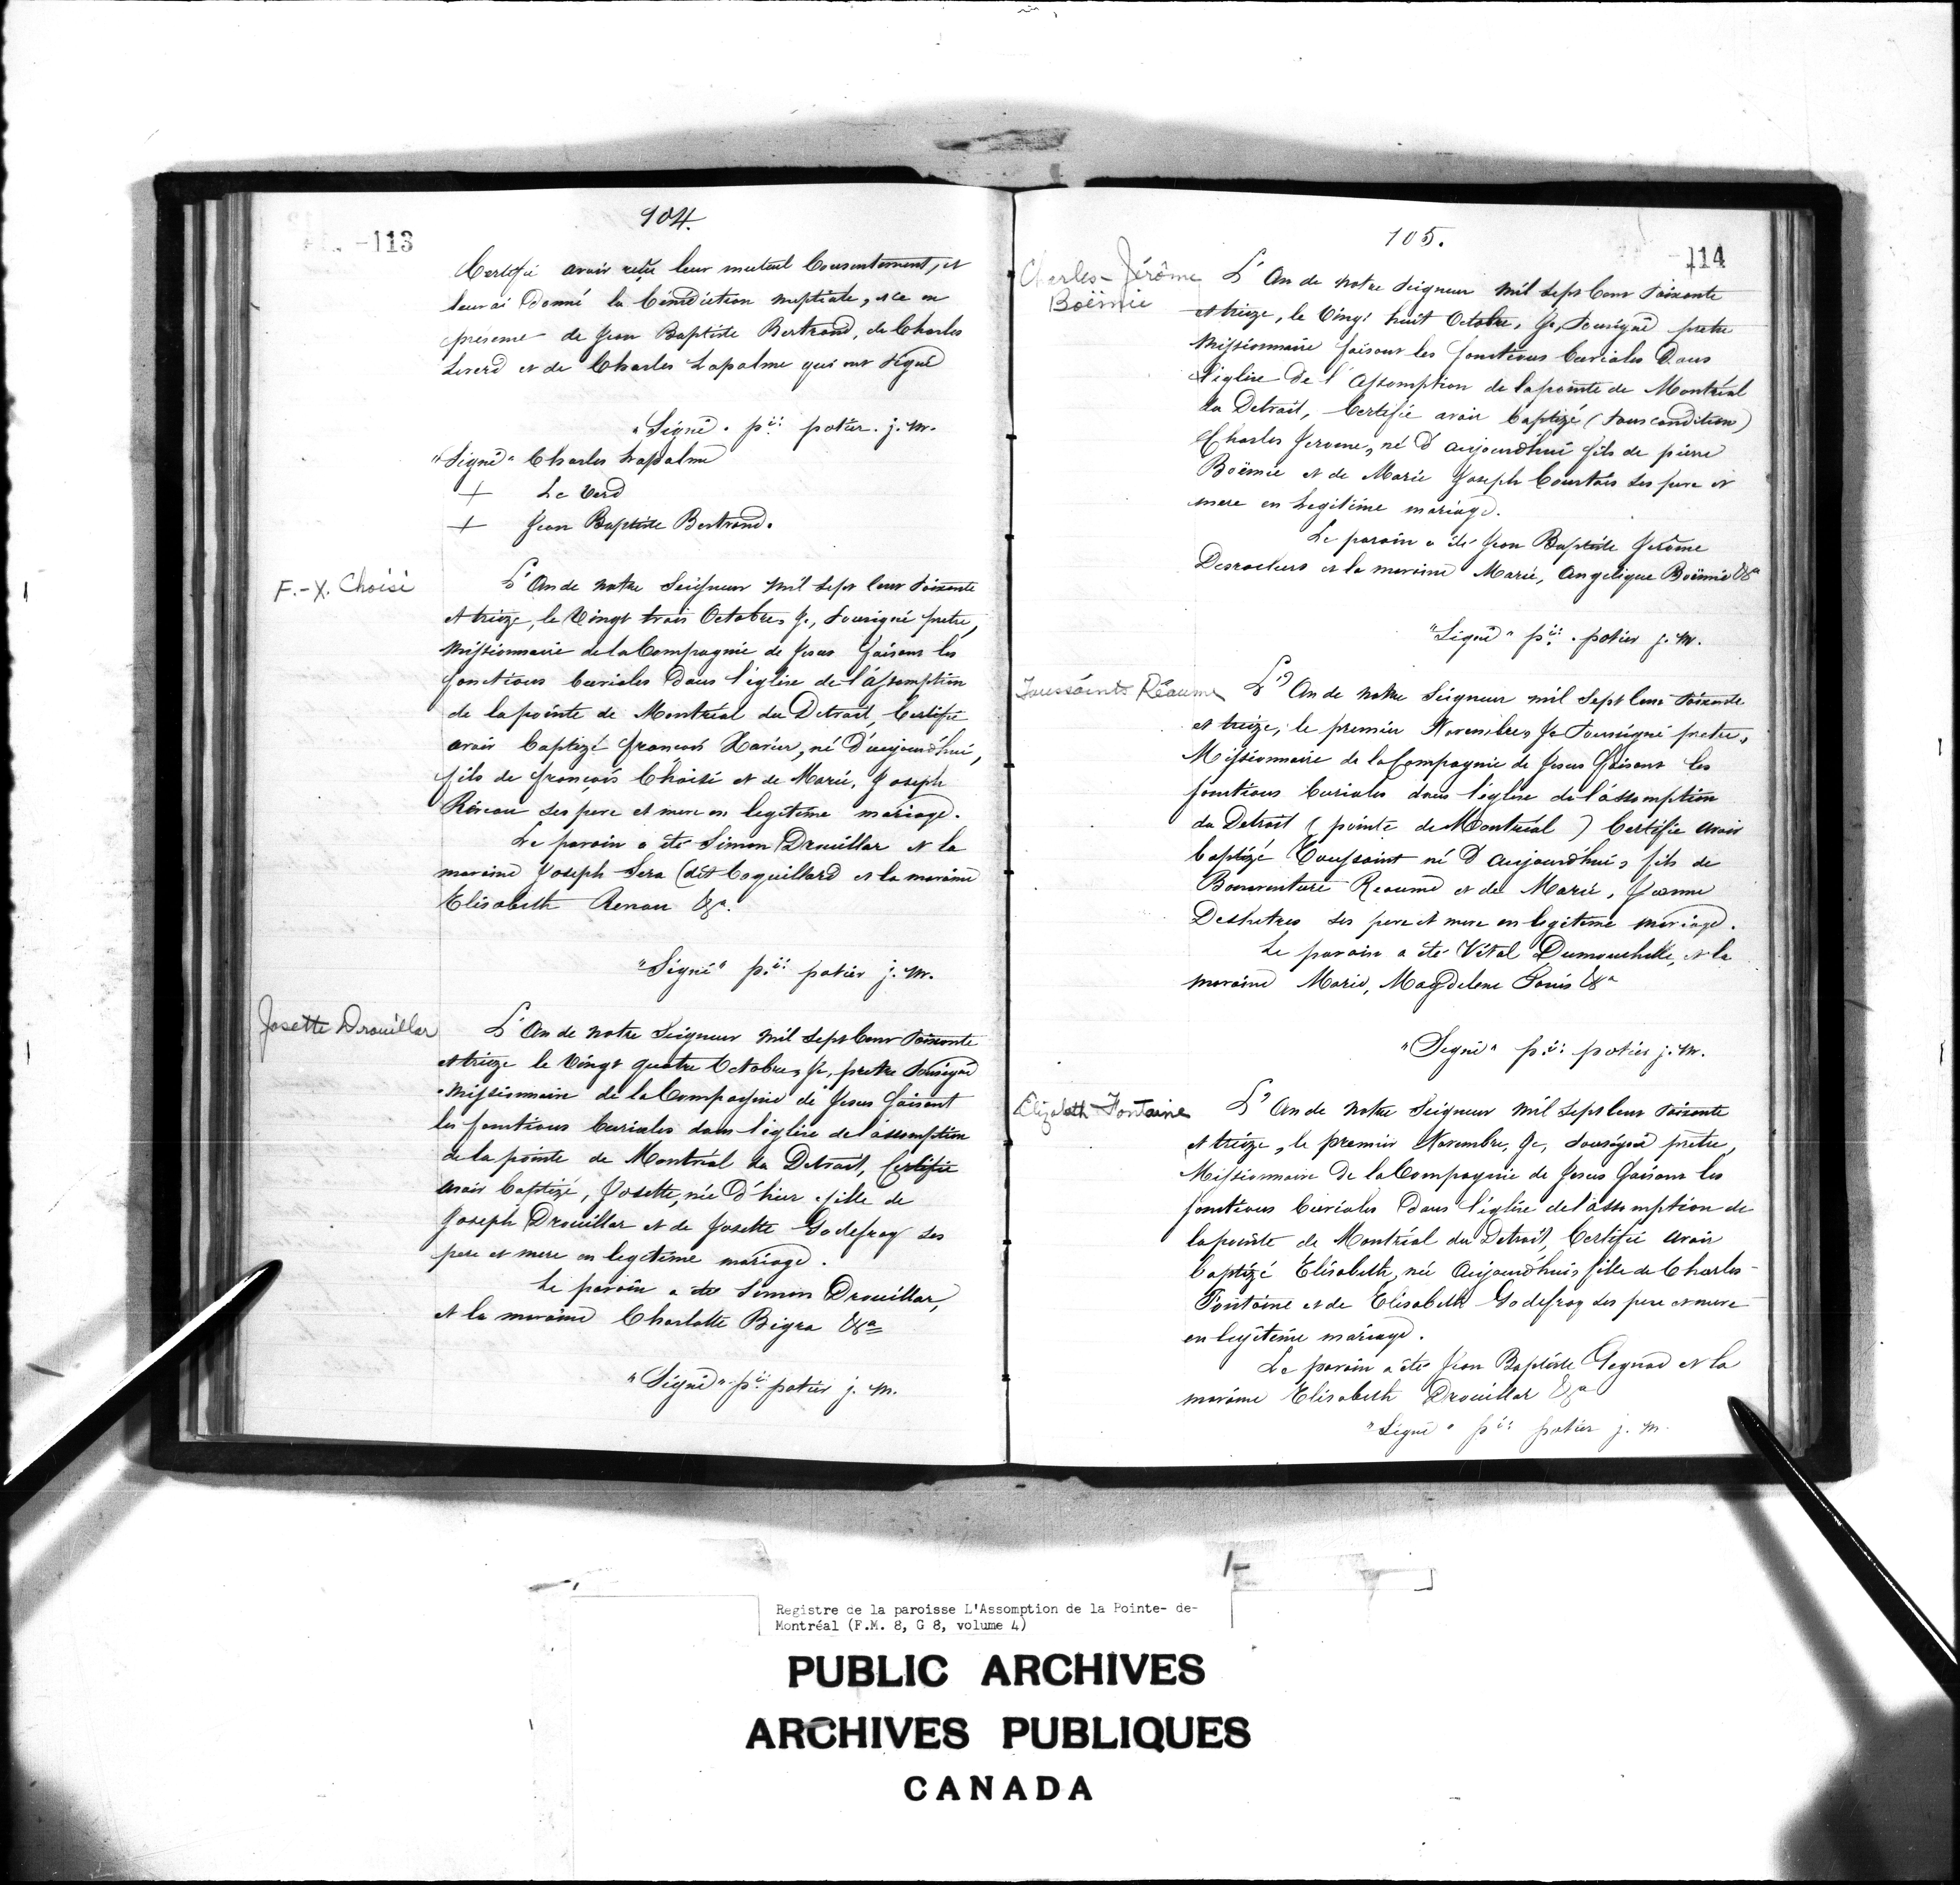 104.
-113
Certifie avoir reçu leur mutuel Consentement, et
leur ai Donné la bénédiction nuptiale, & ce en
présence de Jean Baptiste Bertrand, de Charles
Leverd et de Charles Lapalme qui ont signé
"Signé" p.re potier. j. m.
"Signé" Charles Lapalme
+ Le Verd
+ Jean Baptiste Bertrand.
F.-X. Choisi
L'An de notre Seigneur mil sept cent soixante
et treize, le Vingt trois Octobre, Je, Sousigné pretre,
Missionnaire de la Compagnie de Jesus faisant les
fonctions Curiales Dans l'église de l'assomption
de la pointe de Montréal du Detroit, Certifie
avoir baptizé françois Xavier, né D'aujourd'hui,
fils de françois Choisi et de Marie, Joseph
Réveau ses pere et mere en legitime mariage.
Le parain a été Simon Drouillar et la
maraine Joseph Sera (dit Coquillard et la maraine
Elisabeth Renau &a.
"Signé" p.re potier j. m.
Josette Drouillar
L'An de notre Seigneur mil sept Cent soixante
et treize le Vingt quatre Octobre, Je, pretre sousigné
Missionnaire de la Compagnie de Jesus faisant
les fonctions Curiales dans l'église de l'assomption
de la pointe de Montréal du Detroit, Certifie
avoir baptizé, Josette, née D'hier fille de
Joseph Drouillar et de Josette Godefroy ses
pere et mere en legitime mariage.
Le parain a été Simon Drouillar,
et la maraine Charlotte Bigra &a
"Signé" p.re potier j. m.
105.
114
Charles-Jérôme
Boëmie
L'An de notre Seigneur mil sept Cent soixante
et treize, le Vingt huit Octobre, Je, Sousigné pretre
Missionnaire faisant les fonctions Curiales Dans
l'église De l'assomption de la pointe de Montréal
du Detroit, Certifie avoir baptizé (sous condition)
Charles Jerome, né D'aujourd'hui fils de pierre
Boëmie et de Marie Joseph Courtois ses pere et
mere en Legitime mariage.
Le parain a été Jean Baptiste Jerôme
Desrocheurs et la maraine Marie, Angelique Boëmie &a
"Signé" p.re potier j. m.
Toussaint Réaume
L'An de notre Seigneur mil sept Cent soixante
et treize, le premier Novembre, Je Soussigné pretre,
Missionnaire de la Compagnie de Jesus faisant les
fonctions Curiales dans l'église de l'assomption
du Detroit (pointe de Montréal) Certifie avoir
baptizé Toussaint né D'aujourd'hui, fils de
Bonaventure Reaume et de Marie, Jeanne
Deshetres ses pere et mere en legitime mariage.
Le parain a été Vital Dumouchelle, et la
maraine Marie, Magdelene Souis &a
"Signé" p.re potier j. m.
Elizabeth Fontaine
L'An de notre Seigneur mil sept Cent soixante
et treize, le premier Novembre, Je, sousigné pretre,
Missionnaire De la Compagnie de Jesus faisant les
fonctions Curiales Dans l'église de l'assomption de
la pointe de Montréal du Detroit, Certifie avoir
baptizé Elisabeth, née Aujourd'hui, fille de Charles
Fontaine et de Elisabeth Godefroy ses pere et mere
en legitime mariage.
Le parain a été Jean Baptiste Gegnac et la
maraine Elisabeth Drouillar &a
"Signé" p.re potier j. m.
Registre de la paroisse L'Assomption de la Pointe- de-
Montréal (F.M. 8, G 8, volume 4)
PUBLIC ARCHIVES
ARCHIVES PUBLIQUES
CANADA